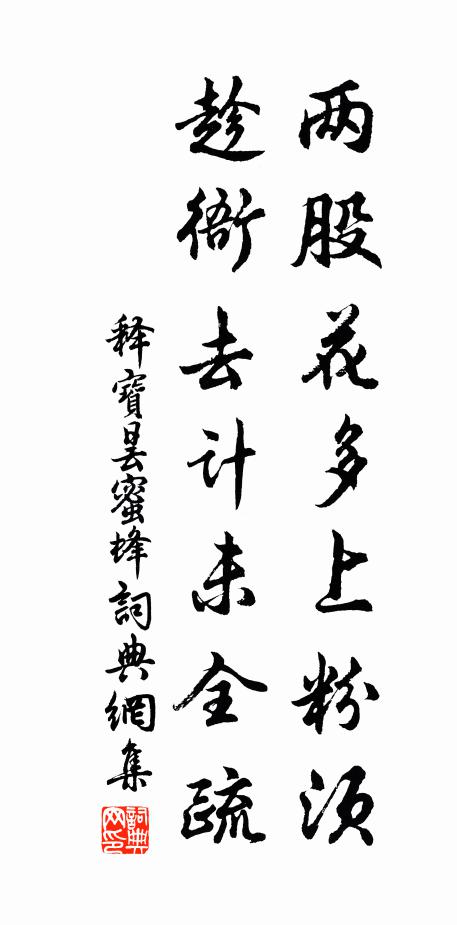 两股花多上粉须
趁衙去计未全疏
释寶昙蜜蜂詞典網集
詞典网印